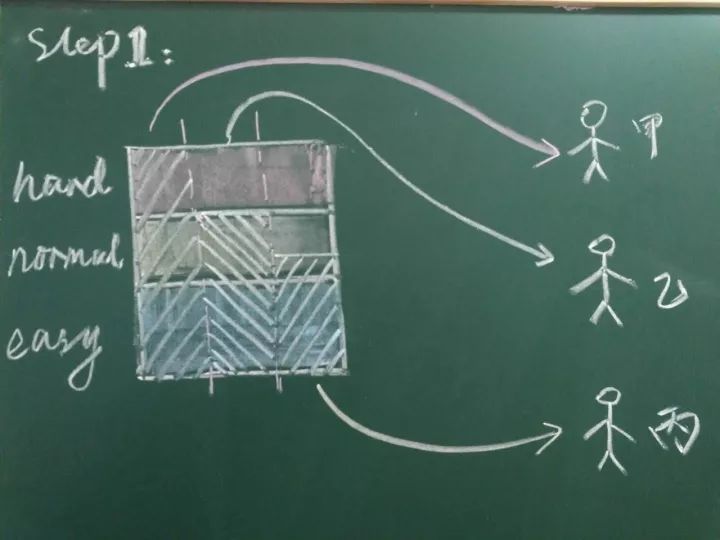 step1:
甲
hard
normal
乙
easy
丙